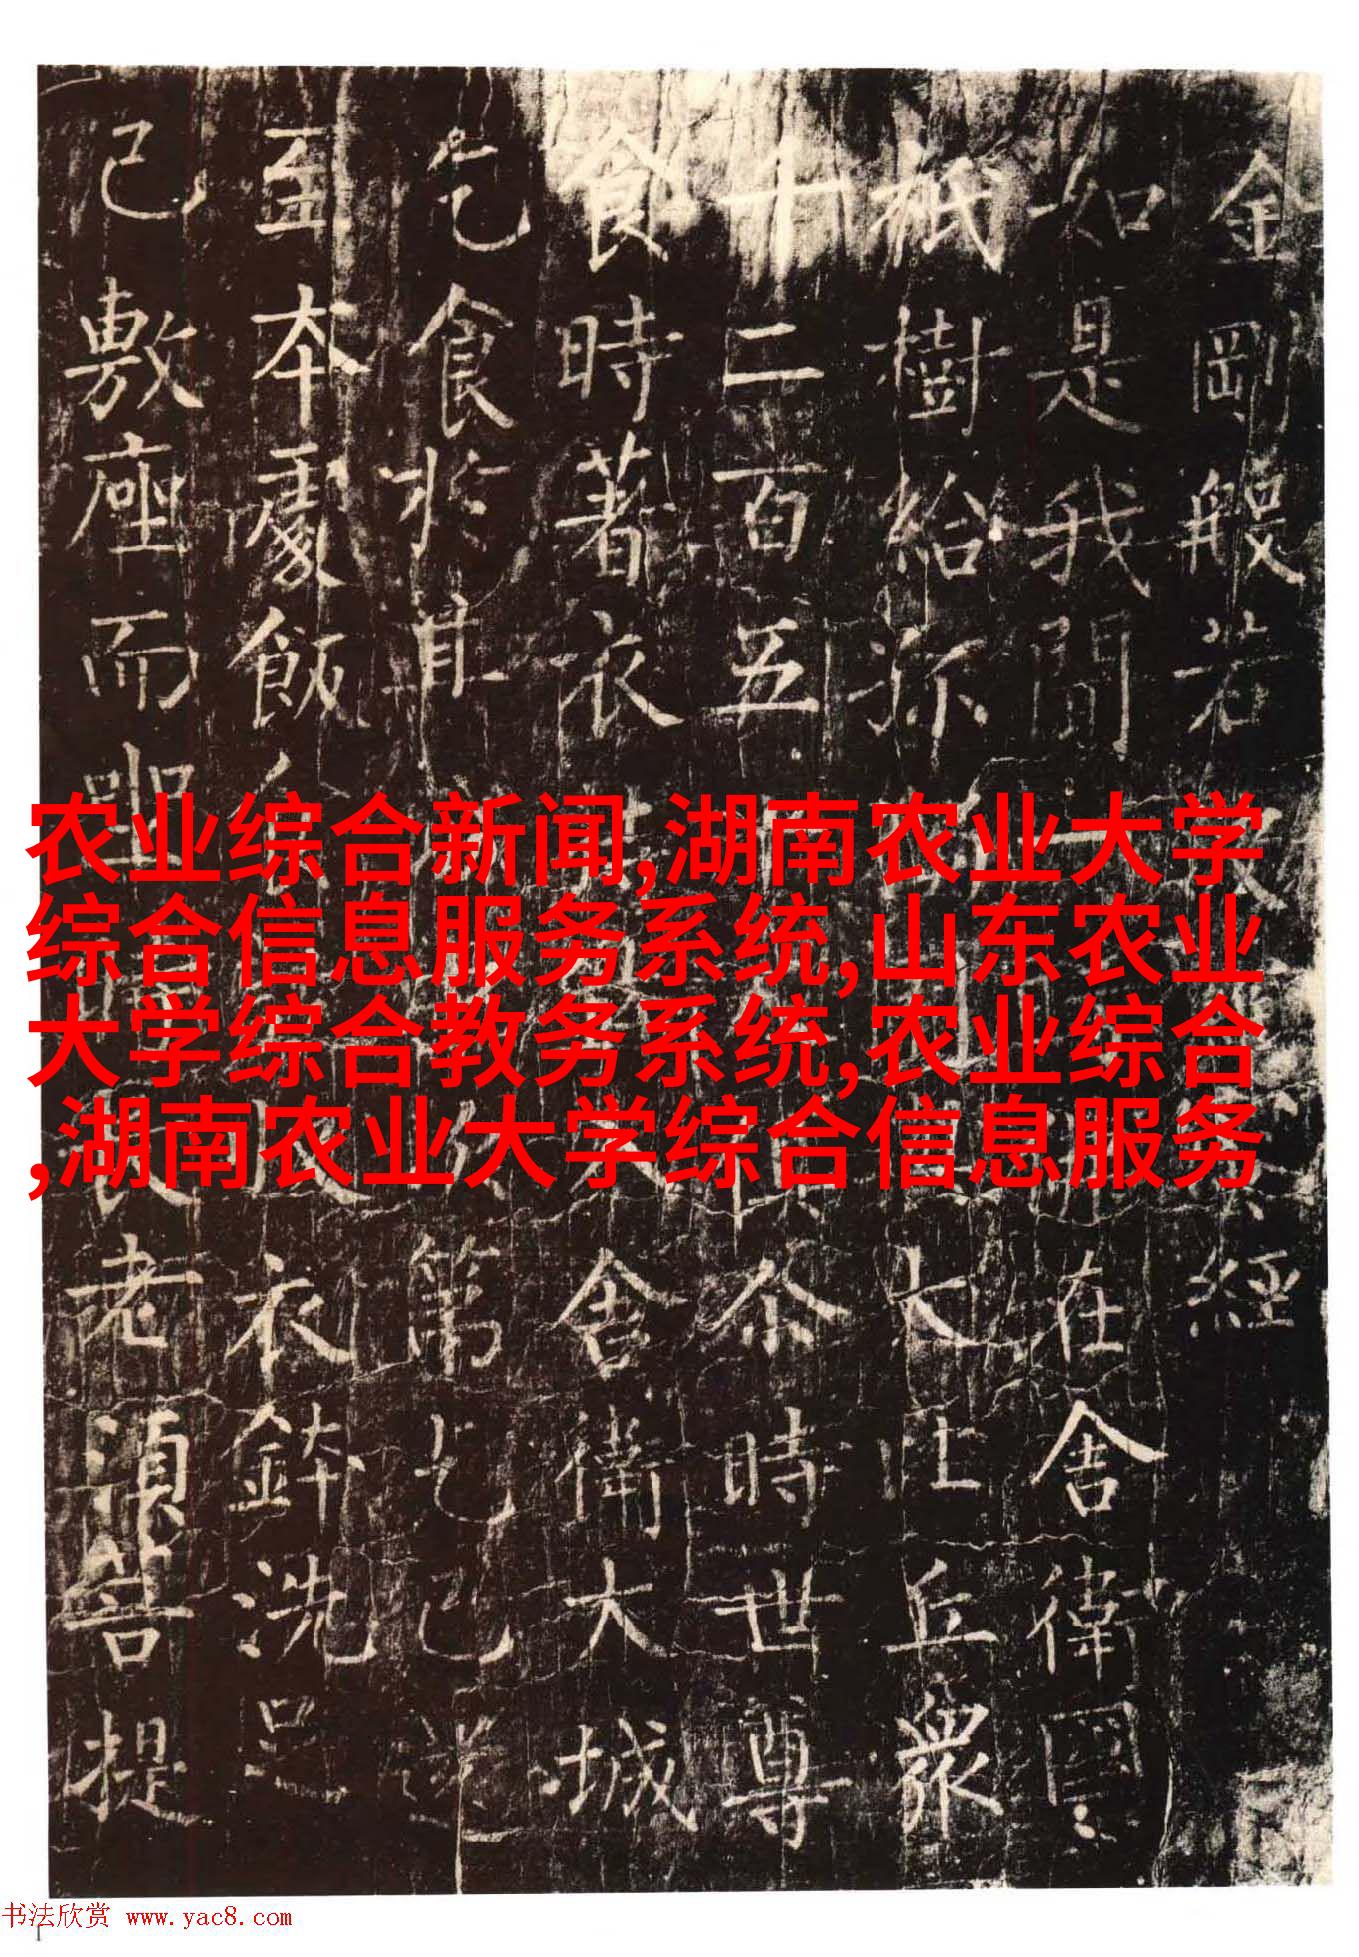 金剛般若
經
如是我聞一
在舍衛國
祇樹給孤
大比丘衆
千二百五
尒時世尊
食時著衣
舍衛大城
乞食於其
第乞已還
至本處飯食
衣鉢洗足
已敷座而坐
長老須菩提
农业综合新闻,湖南农业大学
综合信息服务系统,山东农业
大学综合教务系统,农业综合
,湖南农业大学综合信息服务
书法欣赏 www.yac8.com